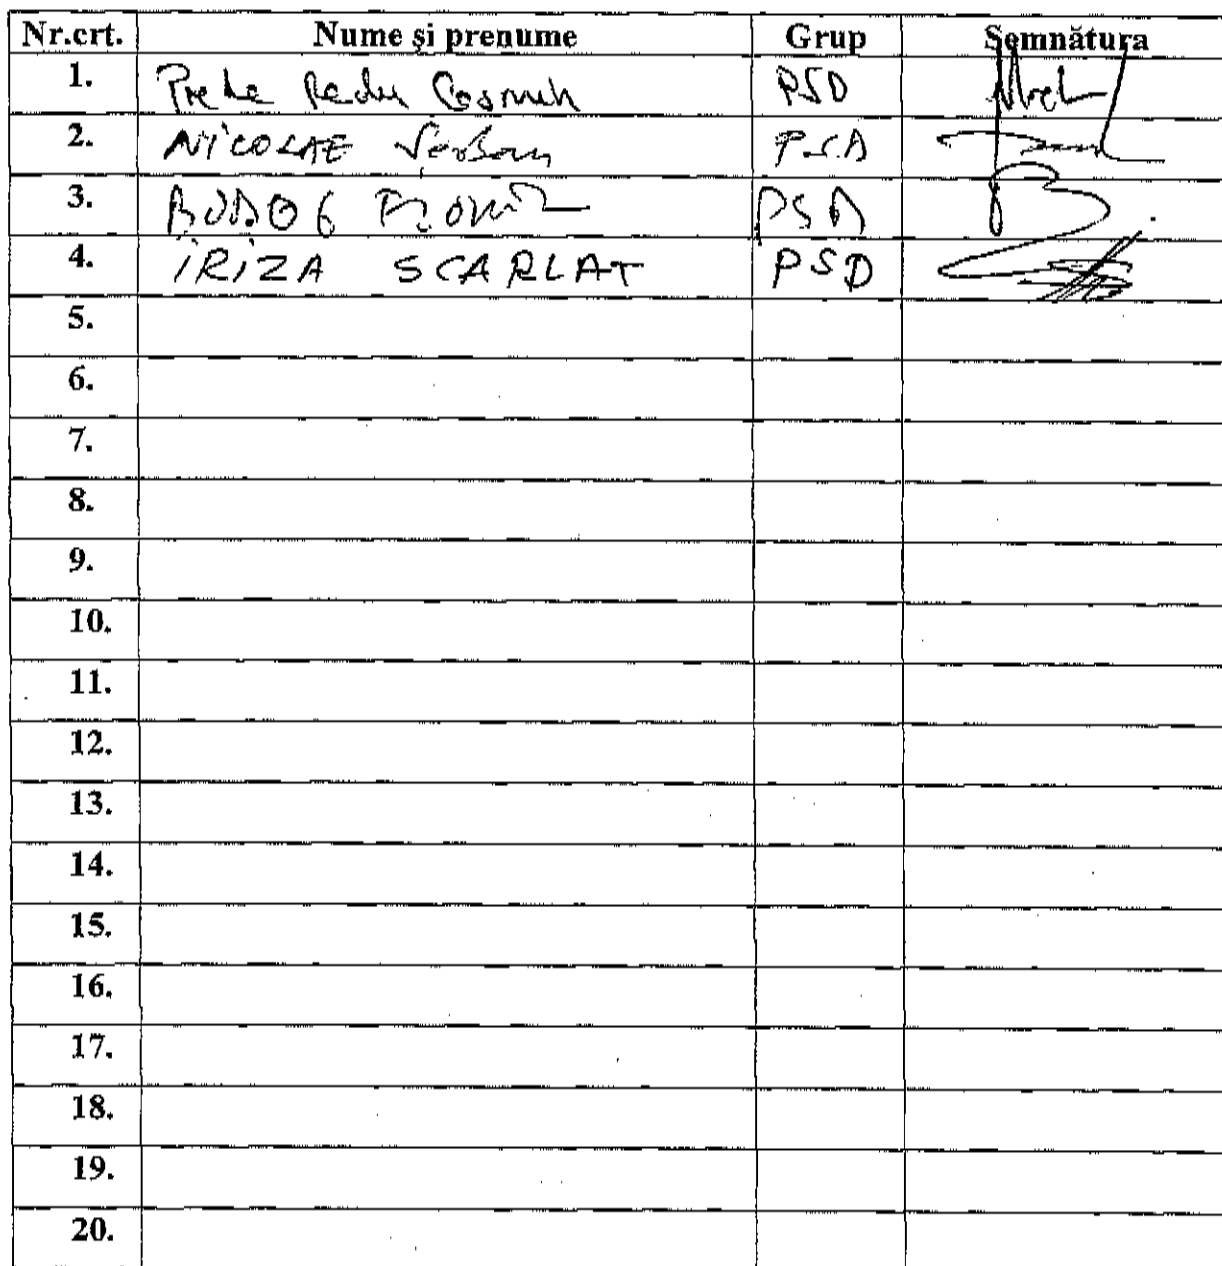 Nr.crt. Nume și prenume Grup Semnătura
1. Radu Cosmin PSD
2. NICOLAE Șerban PSD
3. PSD
4. IRIZA SCARLAT PSD
5.
6.
7.
8.
9.
10.
11.
12.
13.
14.
15.
16.
17.
18.
19.
20.